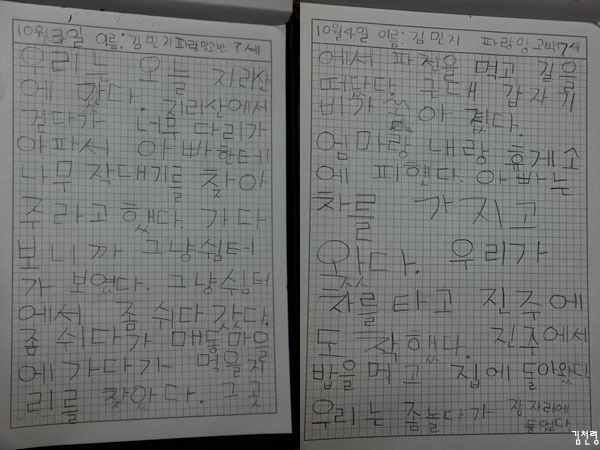 10월3일 이름: 김민지 파랑잉고반 7세
우리는 오늘 지리산
에 갔다. 지리산에서
걷다가 너무 다리가
아파서 아빠한테
나무 작대기를 찾아
주라고 했다. 가다
보니까 그냥쉼터
가 보였다. 그냥쉼터
에서 좀 쉬다 갔다.
좀 쉬다가 매동마을
에 가다가 먹을거
리를 찾았다. 그곳
10월4일 이름: 김민지 파랑잉고반 7세
에서 파전을 먹고 길을
떠났다. 근데 갑자기
비가 쏟아 졌다.
엄마랑 내랑 휴게소
에 피했다. 아빠는
차를 가지고
왔다. 우리가
차를 타고 진주에
도착했다. 진주에서
밥을 먹고 집에 돌아왔다
우리는 좀놀다가 잠자리에
들었다
김천령